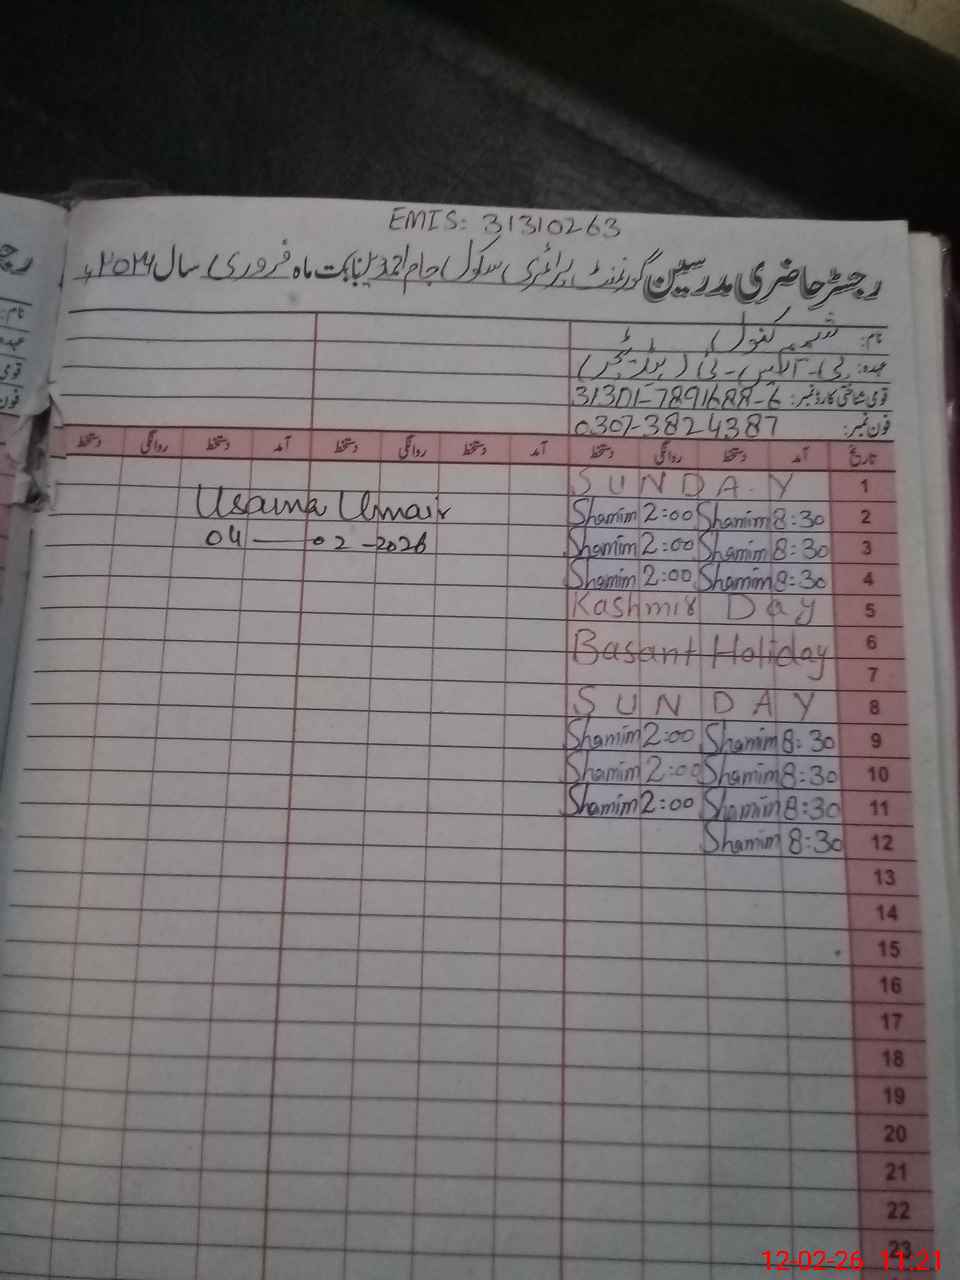 EMIS: 31310263
رجسٹر حاضری مدرسین گورنمنٹ پرائمری سکول جام احمد دین بابت ماہ فروری سال ۲۰۲۶ء
نام: شمیم کنول
عہدہ: پی۔ایس۔ٹی (ہیڈ ٹیچر)
قومی شناختی کارڈ نمبر: 31301-7891688-6
فون نمبر: 0307-3824387
تاریخ آمد دستخط روانگی دستخط آمد دستخط روانگی دستخط آمد دستخط روانگی دستخط
SUNDAY 1
Usama Umair
Shamim 2:00 Shamim 8:30 2
04 — 02 - 2026
Shamim 2:00 Shamim 8:30 3
Shamim 2:00 Shamim 8:30 4
Kashmir Day 5
Basant Holiday 6
7
SUNDAY 8
Shamim 2:00 Shamim 8:30 9
Shamim 2:00 Shamim 8:30 10
Shamim 2:00 Shamim 8:30 11
Shamim 8:30 12
13
14
15
16
17
18
19
20
21
22
23
12-02-26 11:21